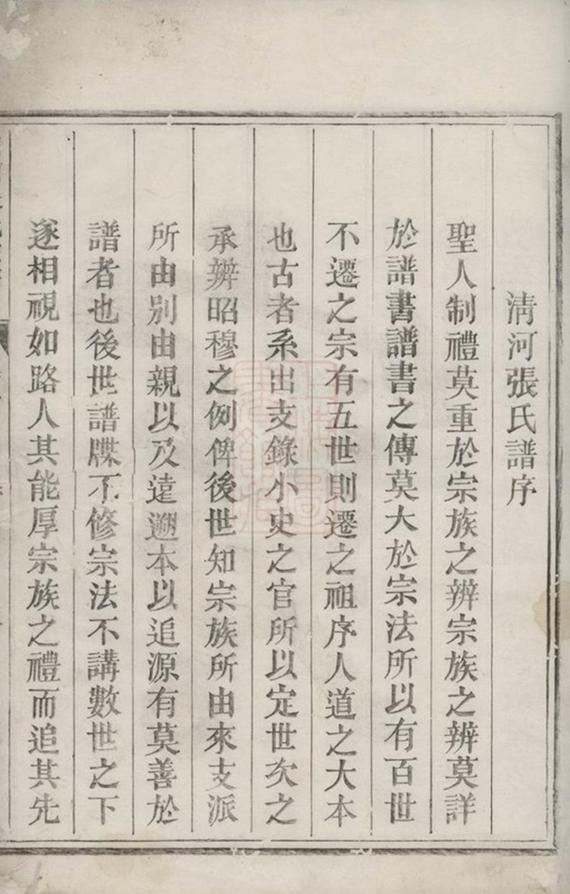 清河張氏譜序
聖人制禮莫重於宗族之辨宗族之辨莫詳
於譜書譜書之傳莫大於宗法所以有百世
不遷之宗有五世則遷之祖序人道之大本
也古者系出支錄小史之官所以定世次之
承辨昭穆之例俾後世知宗族所由來支派
所由別由親以及遠遡本以追源有莫善於
譜者也後世譜牒不修宗法不講數世之下
遂相視如路人其能厚宗族之禮而追其先